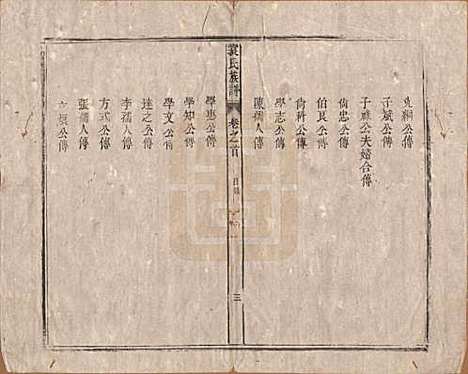 子斌公傳
子麻公夫婦合傳
尙忠公傳
伯良公傳
尙科公傳
學志公傳
陳孺人傳
袁氏族譜
卷之首
目錄
三
學惠公傳
學知公傳
學文公傳
達之公傳
李孺人傳
方式公傳
張孺人傳
公傳